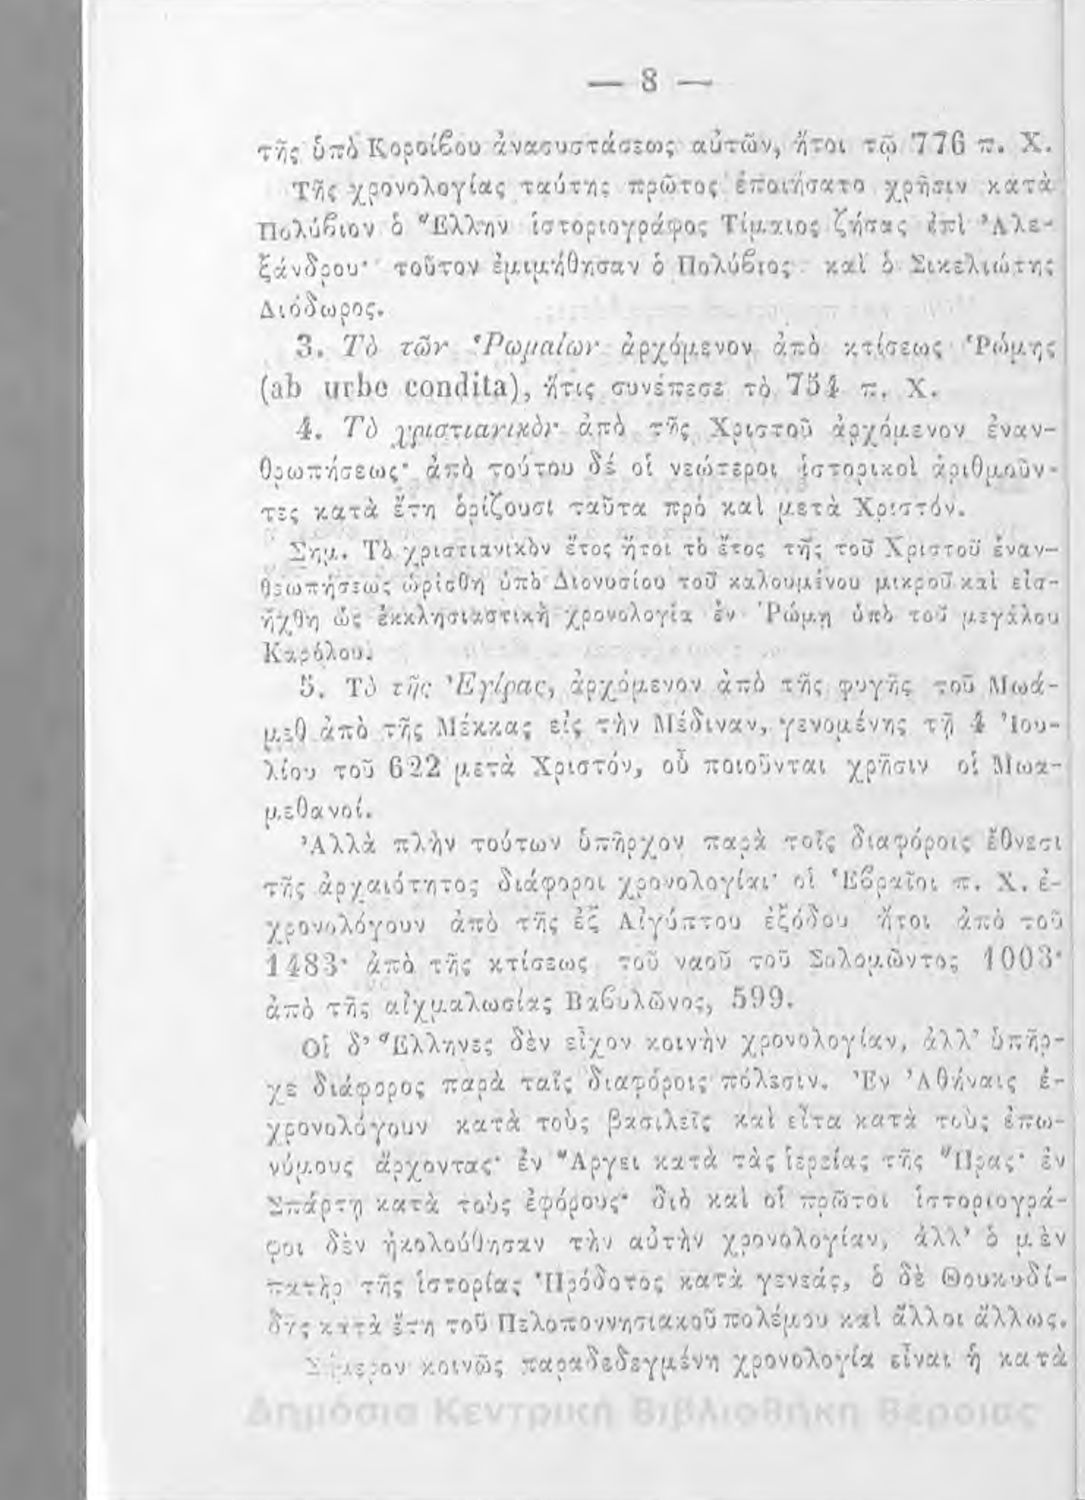 — 8 —
τῆς ὑπὸ Κοροίβου ἀνασυστάσεως αὐτῶν, ἤτοι τῷ 776 π. Χ.
Τῆς χρονολογίας ταύτης πρῶτος ἐποιήσατο χρῆσιν κατὰ
Πολύβιον ὁ Ἕλλην ἱστοριογράφος Τίμαιος ζήσας ἐπὶ Ἀλε-
ξάνδρου· τοῦτον ἐμιμήθησαν ὁ Πολύβιος καὶ ὁ Σικελιώτης
Διόδωρος.
3. Τὸ τῶν Ῥωμαίων ἀρχόμενον ἀπὸ κτίσεως Ῥώμης
(ab urbe condita), ἥτις συνέπεσε τὸ 754 π. Χ.
4. Τὸ χριστιανικὸν ἀπὸ τῆς Χριστοῦ ἀρχόμενον ἐναν-
θρωπήσεως· ἀπὸ τούτου δέ οἱ νεώτεροι ἱστορικοὶ ἀριθμοῦν-
τες κατὰ ἔτη ὁρίζουσι ταῦτα πρὸ καὶ μετὰ Χριστόν.
Σημ. Τὸ χριστιανικὸν ἔτος ἤτοι τὸ ἔτος τῆς τοῦ Χριστοῦ ἐναν-
θρωπήσεως ὡρίσθη ὑπὸ Διονυσίου τοῦ καλουμένου μικροῦ καὶ εἰσ-
ήχθη ὡς ἐκκλησιαστικὴ χρονολογία ἐν Ῥώμῃ ὑπὸ τοῦ μεγάλου
Καρόλου.
5. Τὸ τῆς Ἐγίρας, ἀρχόμενον ἀπὸ τῆς φυγῆς τοῦ Μωά-
μεθ ἀπὸ τῆς Μέκκας εἰς τὴν Μέδιναν, γενομένης τῇ 4 Ἰου-
λίου τοῦ 622 μετὰ Χριστόν, οὗ ποιοῦνται χρῆσιν οἱ Μωα-
μεθανοί.
Ἀλλὰ πλὴν τούτων ὑπῆρχον παρὰ τοῖς διαφόροις ἔθνεσι
τῆς ἀρχαιότητος διάφοροι χρονολογίαι· οἱ Ἑβραῖοι π. Χ. ἐ-
χρονολόγουν ἀπὸ τῆς ἐξ Αἰγύπτου ἐξόδου ἤτοι ἀπὸ τοῦ
1483· ἀπὸ τῆς κτίσεως τοῦ ναοῦ τοῦ Σολομῶντος 1003·
ἀπὸ τῆς αἰχμαλωσίας Βαβυλῶνος, 599.
Οἱ δ' Ἕλληνες δὲν εἶχον κοινὴν χρονολογίαν, ἀλλ' ὑπῆρ-
χε διάφορος παρὰ ταῖς διαφόροις πόλεσιν. Ἐν Ἀθήναις ἐ-
χρονολόγουν κατὰ τοὺς βασιλεῖς καὶ εἶτα κατὰ τοὺς ἐπω-
νύμους ἄρχοντας· ἐν Ἄργει κατὰ τὰς ἱερείας τῆς Ἥρας· ἐν
Σπάρτῃ κατὰ τοὺς ἐφόρους· διὸ καὶ οἱ πρῶτοι ἱστοριογρά-
φοι δὲν ἠκολούθησαν τὴν αὐτὴν χρονολογίαν, ἀλλ' ὁ μὲν
πατὴρ τῆς ἱστορίας Ἡρόδοτος κατὰ γενεάς, ὁ δὲ Θουκυδί-
δης κατὰ ἔτη τοῦ Πελοποννησιακοῦ πολέμου καὶ ἄλλοι ἄλλως.
Σήμερον κοινῶς παραδεδεγμένη χρονολογία εἶναι ἡ κατὰ
Δημόσια Κεντρική Βιβλιοθήκη Βέροιας